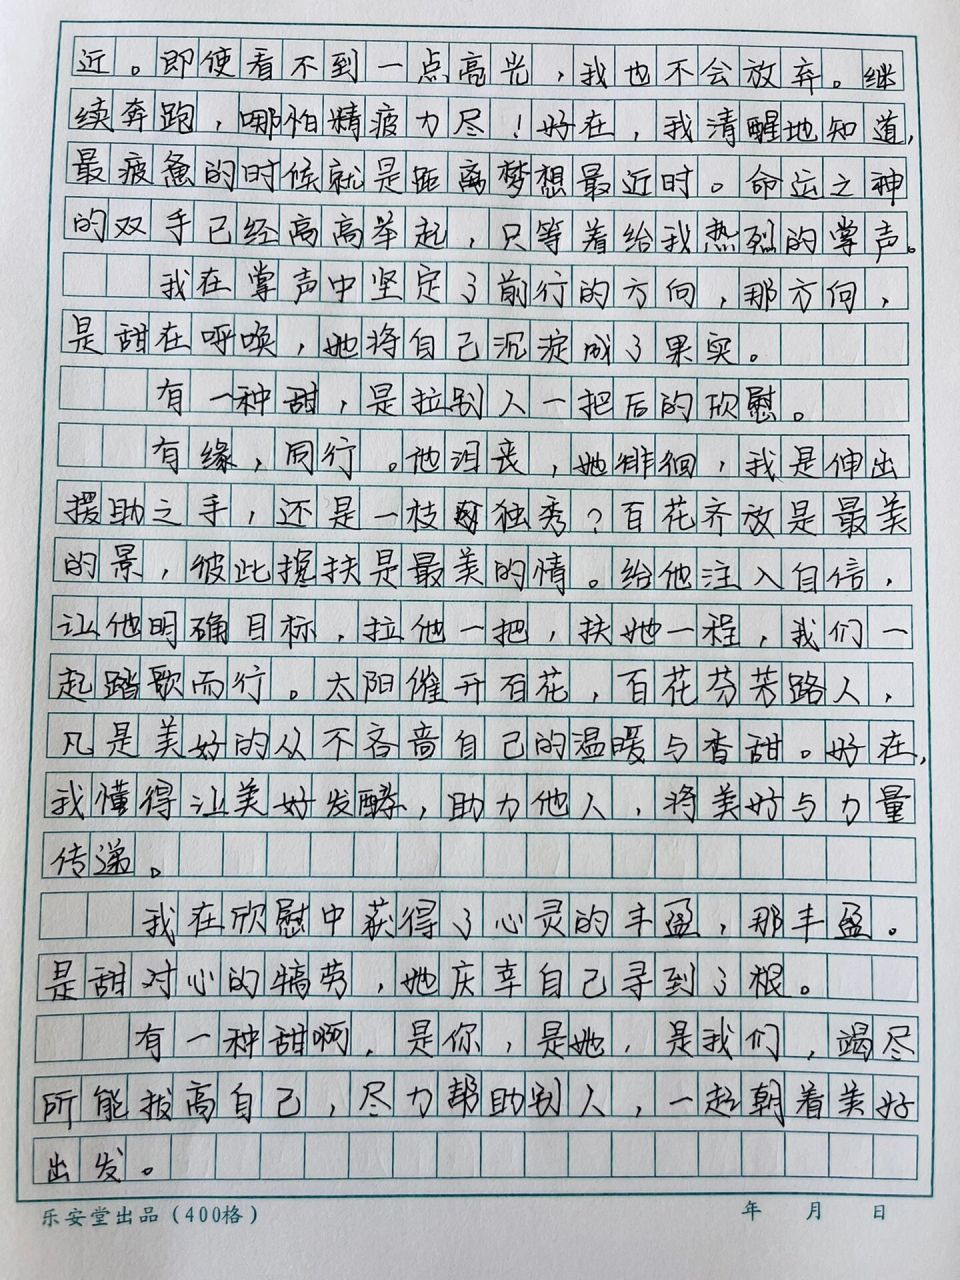 近。即使看不到一点高光，我也不会放弃。继
续奔跑，哪怕精疲力尽！好在，我清醒地知道，
最疲惫的时候就是距离梦想最近时。命运之神
的双手已经高高举起，只等着给我热烈的掌声。
我在掌声中坚定了前行的方向，那方向，
是甜在呼唤，她将自己沉淀成了果实。
有一种甜，是拉别人一把后的欣慰。
有缘，同行。他沮丧，她徘徊，我是伸出
援助之手，还是一枝独秀？百花齐放是最美
的景，彼此搀扶是最美的情。给他注入自信，
让他明确目标，拉他一把，扶她一程，我们一
起踏歌而行。太阳催开百花，百花芬芳路人，
凡是美好的从不吝啬自己的温暖与香甜。好在，
我懂得让美好发酵，助力他人，将美好与力量
传递。
我在欣慰中获得了心灵的丰盈，那丰盈。
是甜对心的犒劳，她庆幸自己寻到了根。
有一种甜啊，是你，是她，是我们，竭尽
所能拔高自己，尽力帮助别人，一起朝着美好
出发。
乐安堂出品（400格） 年 月 日